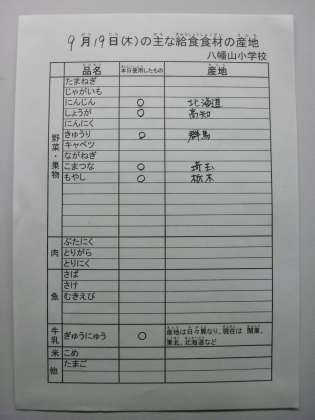 9月19日(木)の主な給食食材の産地
八幡山小学校
品名 本日使用したもの 産地
野菜・果物
たまねぎ
じゃがいも
にんじん ○ 北海道
しょうが ○ 高知
にんにく
きゅうり ○ 群馬
キャベツ
ながねぎ
こまつな ○ 埼玉
もやし ○ 栃木
肉
ぶたにく
とりがら
とりにく
魚
さば
さけ
むきえび
牛乳 ぎゅうにゅう ○ 産地は日々異なり、現在は 関東、
東北、北海道など
米 こめ
他 たまご